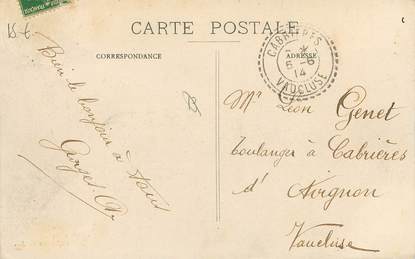 CARTE POSTALE
CORRESPONDANCE
ADRESSE
CABRIÈRES
5-6
14
VAUCLUSE
Bien le bonjour à tous
Georges
Mr Léon Genet
Boulanger à Cabrières
d'Avignon
Vaucluse